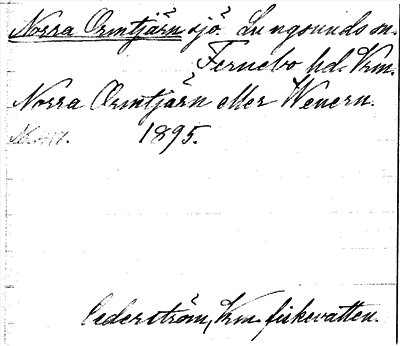 Norra Ormtjärn sjö. Lungsunds sn.
Fernebo hd. Vrm.
Norra Ormtjärn eller Wenern.
1895.
Cederström, Vrm. fiskevatten.